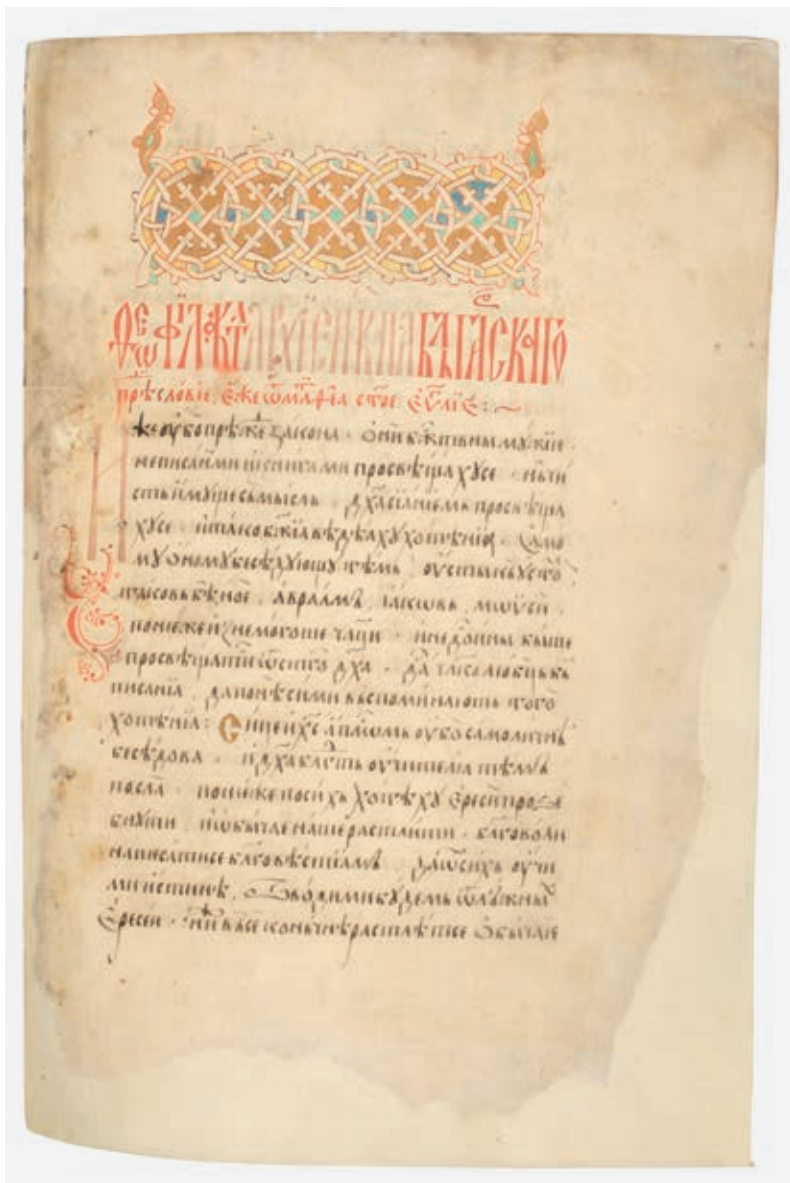 Ѳеѡфѷлакта архїеп҃кпа блъгарскаго
прѣсловїе, еже ѿ маѳеа ст҃ое еѵ҃лїе:~
же оубо прѣжⷣе закона. ѡни бж҃твнїи мѹжїе
не писанми и книгами просвѣщахѹсе. нь чи
стъ имѹще съмысль, дх҃а сїанїемь просвѣща
хѹсе. и тако бж҃їа вѣдѣахѹ хотѣнїа. само
мѹ ѡномѹ бесѣдѹющѹ тѣмь, оусты къ ѹстѡ
таковь бѣ ное, авраамъ, їакѡвь, мѡѵсїи.
понеже и изнемогоше чл҃ци. и недⷭ҇оинїи быше
просвѣщатисе ѿ ст҃го дх҃а. дасть чл҃колюбць б҃ь
писанїа, да понѣ сими вьспоминають того
хотѣнїа: Сице и х҃с ап҃лѡмь оубо самоличнѣ
бесѣдова. и дх҃а блгⷣть оучителꙗ тѣмъ
посла. понеже по сихь хотѣхѹ ереси прозе
бнѹти, и ѡбычае наше растлити. благоволи
написатисе благовѣстїамъ, да ѿ сихь оучи
ми истинѣ, не ѿводими бѹдемь ѿ лъжныⷯ
ересеи. нї въсеконьчнѣ растлетсе ѡбычаїе